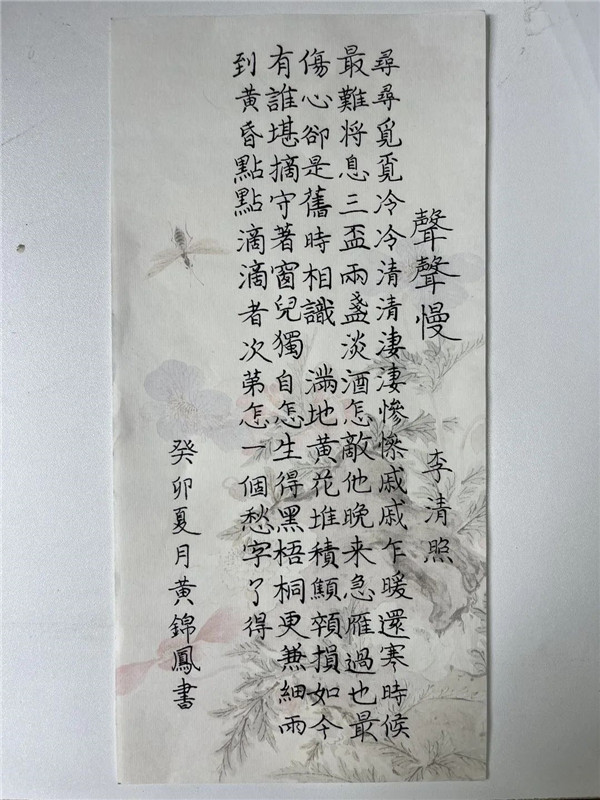 聲聲慢
李清照
尋尋覓覓冷冷清清淒淒慘慘戚戚乍暖還寒時候
最難将息三盃兩盞淡酒怎敵他晚来急雁過也最
傷心卻是舊時相識 滿地黃花堆積顦顇損如今
有誰堪摘守著窗兒獨自怎生得黑梧桐更兼細雨
到黃昏點點滴滴者次第怎一個愁字了得
癸卯夏月黃錦鳳書